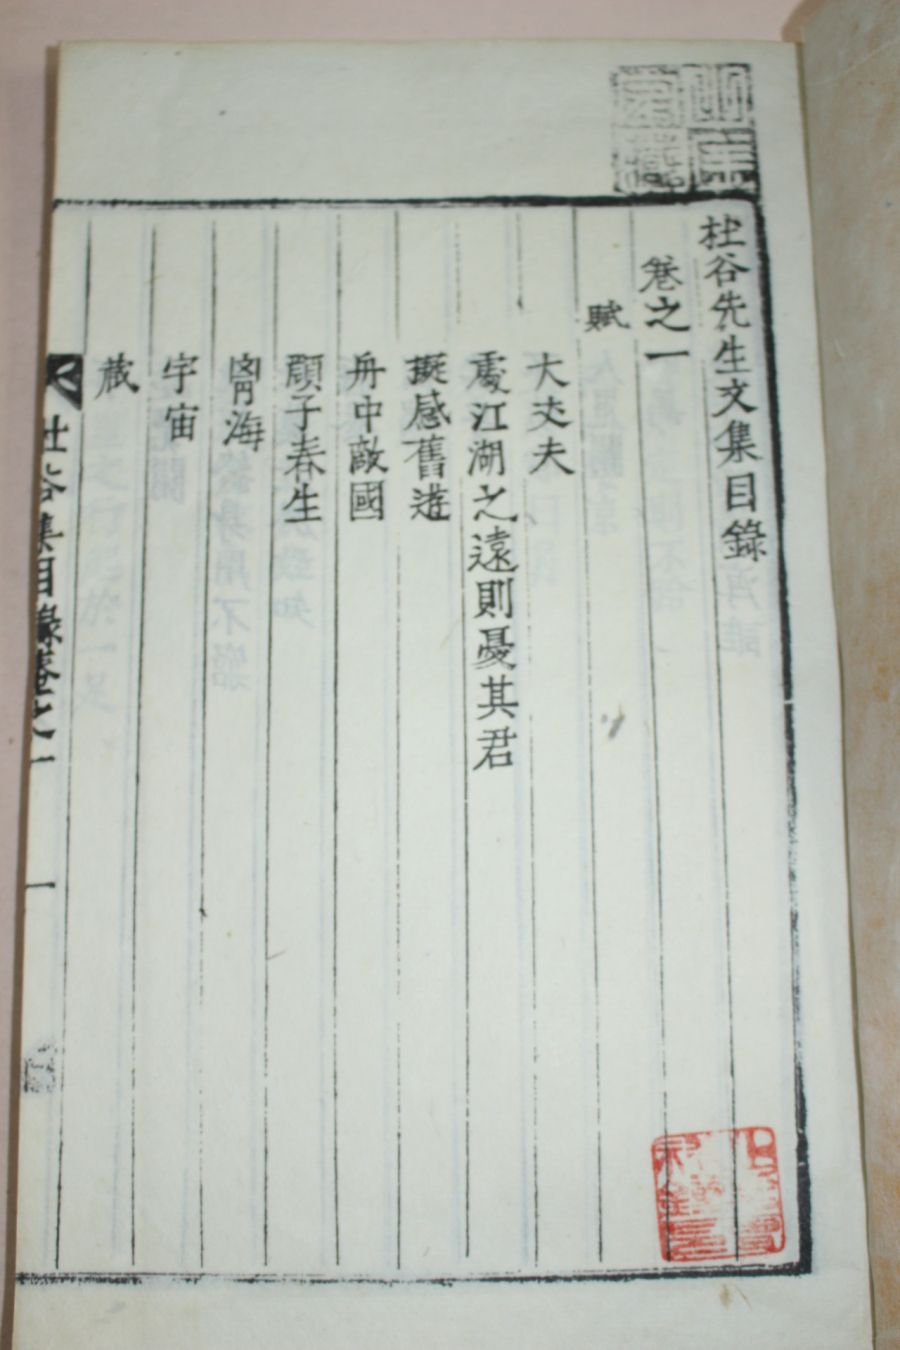 杜谷先生文集目錄
卷之一
賦
大丈夫
處江湖之遠則憂其君
擬感舊遊
舟中敵國
顔子春生
海
宇宙
蔵
杜谷集目錄卷之一
一